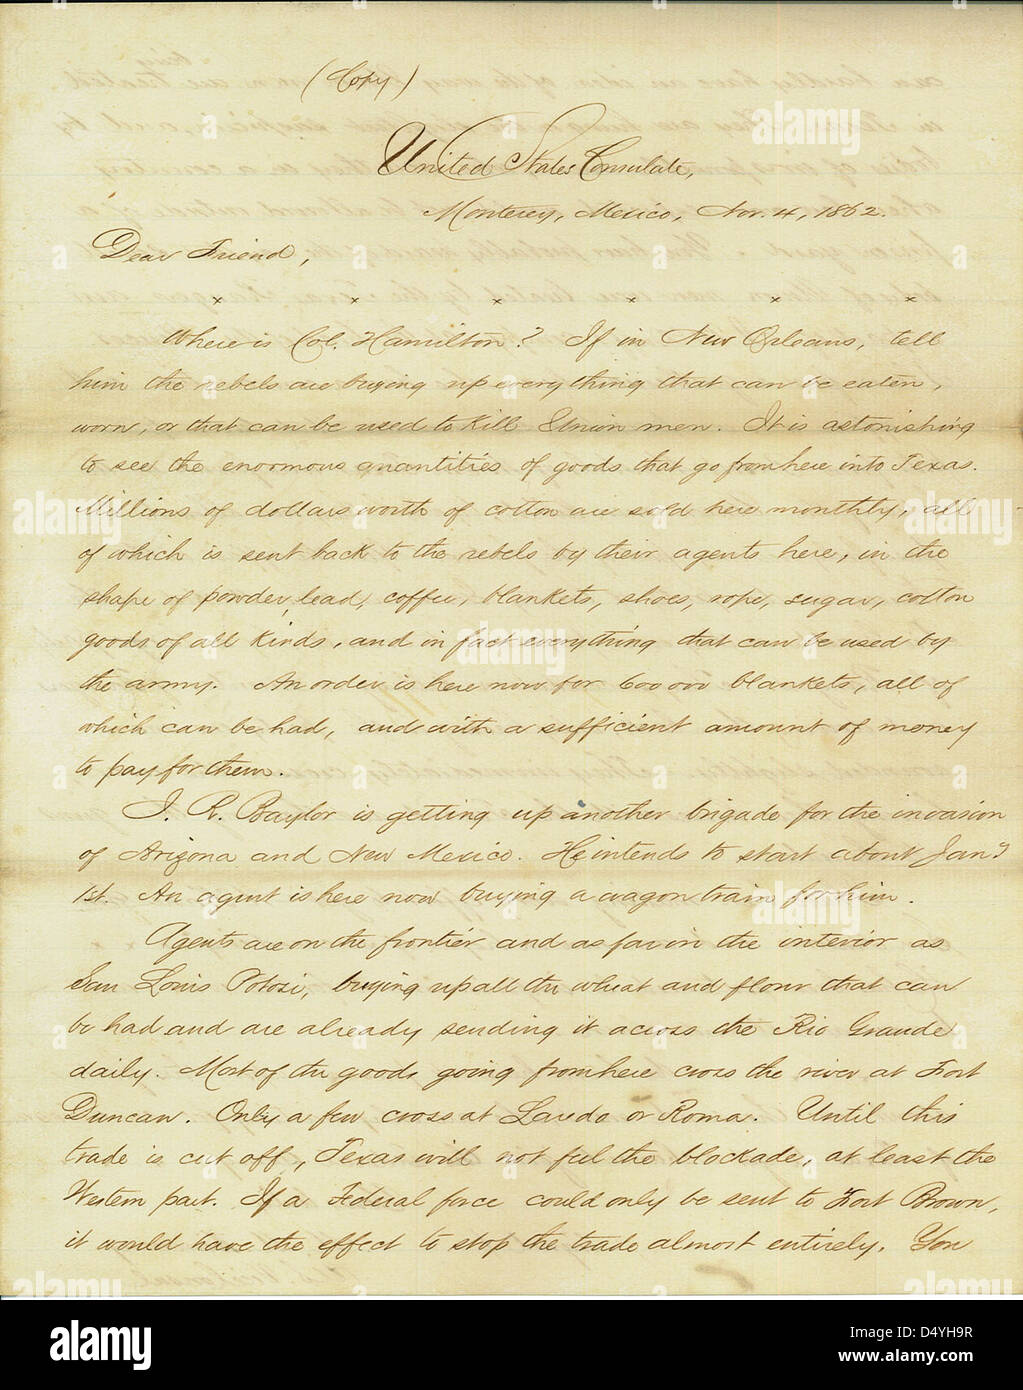 (Copy)
United States Consulate,
Monterey, Mexico, Nov. 4, 1862.
Dear Friend,
x x x x x x
Where is Col. Hamilton? If in New Orleans, tell
him the rebels are buying up everything that can be eaten,
worn, or that can be used to kill Union men. It is astonishing
to see the enormous quantities of goods that go from here into Texas.
Millions of dollars worth of cotton are sold here monthly, all
of which is sent back to the rebels by their agents here, in the
shape of powder, lead, coffee, blankets, shoes, rope, sugar, cotton
goods of all kinds, and in fact everything that can be used by
the army. An order is here now for 600 000 blankets, all of
which can be had, and with a sufficient amount of money
to pay for them.
J. R. Baylor is getting up another brigade for the invasion
of Arizona and New Mexico. He intends to start about Jany
1st. An agent is here now buying a wagon train for him.
Agents are on the frontier and as far in the interior as
San Louis Potosi, buying up all the wheat and flour that can
be had and are already sending it across the Rio Grande
daily. Most of the goods going from here cross the river at Fort
Duncan. Only a few cross at Laredo or Roma. Until this
trade is cut off, Texas will not feel the blockade, at least the
Western part. If a Federal force could only be sent to Fort Brown,
it would have the effect to stop the trade almost entirely. You
alamy
Image ID: D4YH9R
www.alamy.com